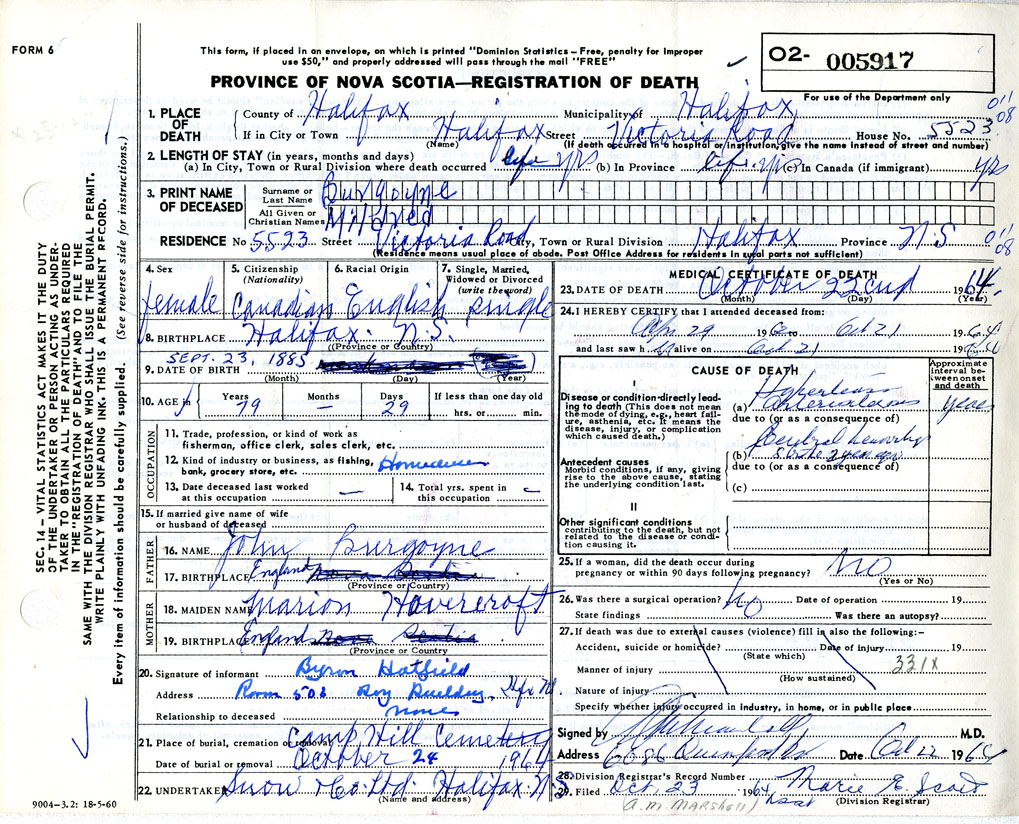 FORM 6
This form, if placed in an envelope, on which is printed "Dominion Statistics – Free, penalty for improper
use $50," and properly addressed will pass through the mail "FREE"
PROVINCE OF NOVA SCOTIA—REGISTRATION OF DEATH
02- 005917
For use of the Department only
1. PLACE OF DEATH
County of Halifax Municipality of Halifax 011
08
If in City or Town Halifax Street Victoria Road House No. 5523
(Name) (If death occurred in a hospital or institution, give the name instead of street and number)
2. LENGTH OF STAY (in years, months and days)
(a) In City, Town or Rural Division where death occurred life yrs (b) In Province life yrs (c) In Canada (if immigrant) yrs
3. PRINT NAME OF DECEASED
Surname or Last Name Burgoyne
All Given or Christian Names Mildred
RESIDENCE No 5523 Street Victoria Road City, Town or Rural Division Halifax Province N.S 011
08
(Residence means usual place of abode. Post Office Address for residents in rural parts not sufficient)
4. Sex female
5. Citizenship (Nationality) Canadian
6. Racial Origin English
7. Single, Married, Widowed or Divorced (write the word) single
8. BIRTHPLACE Halifax N.S.
(Province or Country)
SEPT. 23, 1885
9. DATE OF BIRTH
(Month) (Day) (Year)
10. AGE in Years 79 Months — Days 29 If less than one day old hrs. or min.
OCCUPATION
11. Trade, profession, or kind of work as
fisherman, office clerk, sales clerk, etc.
12. Kind of industry or business, as fishing,
bank, grocery store, etc.
13. Date deceased last worked
at this occupation —
14. Total yrs. spent in
this occupation —
15. If married give name of wife
or husband of deceased
FATHER
16. NAME John Burgoyne
17. BIRTHPLACE England Nova Scotia
(Province or Country)
MOTHER
18. MAIDEN NAME Marion Hovercroft
19. BIRTHPLACE England Nova Scotia
(Province or Country
20. Signature of informant Byron Hatfield
Address Room 502 Roy Building, Hfx NS.
Relationship to deceased none
21. Place of burial, cremation or removal Camp Hill Cemetery
Date of burial or removal October 24 1964
22. UNDERTAKER Snow & Co Ltd Halifax N.S
(Name and address)
9004-3.2: 18-5-60
MEDICAL CERTIFICATE OF DEATH
23. DATE OF DEATH October 22nd 1964
(Month) (Day) (Year)
24. I HEREBY CERTIFY that I attended deceased from:
29 196 to Oct 21 1964
and last saw h alive on Oct 21 1964
CAUSE OF DEATH
Approximate interval between onset and death
I
Disease or condition directly leading to death (This does not mean the mode of dying, e.g., heart failure, asthenia, etc. It means the disease, injury, or complication which caused death.)
(a) years
due to (or as a consequence of)
Antecedent causes
Morbid conditions, if any, giving rise to the above cause, stating the underlying condition last.
(b) Cerebral
due to (or as a consequence of)
(c)
II
Other significant conditions
contributing to the death, but not related to the disease or condition causing it.
25. If a woman, did the death occur during
pregnancy or within 90 days following pregnancy? NO
(Yes or No)
26. Was there a surgical operation? No Date of operation 19
State findings Was there an autopsy?
27. If death was due to external causes (violence) fill in also the following:–
Accident, suicide or homicide? Date of injury 19
(State which)
Manner of injury 331X
(How sustained)
Nature of injury
Specify whether injury occurred in industry, in home, or in public place
Signed by M.D.
Address 6086 Date Oct 22 196
28. Division Registrar's Record Number
29. Filed Oct, 23 1964 Marie E. Scott
(A.M. MARSHELL) (Division Registrar)
SEC. 14 – VITAL STATISTICS ACT MAKES IT THE DUTY
OF THE UNDERTAKER OR PERSON ACTING AS UNDER-
TAKER TO OBTAIN ALL THE PARTICULARS REQUIRED
IN THE "REGISTRATION OF DEATH" AND TO FILE THE
SAME WITH THE DIVISION REGISTRAR WHO SHALL ISSUE THE BURIAL PERMIT.
WRITE PLAINLY WITH UNFADING INK. THIS IS A PERMANENT RECORD.
Every item of information should be carefully supplied. (See reverse side for instructions.)